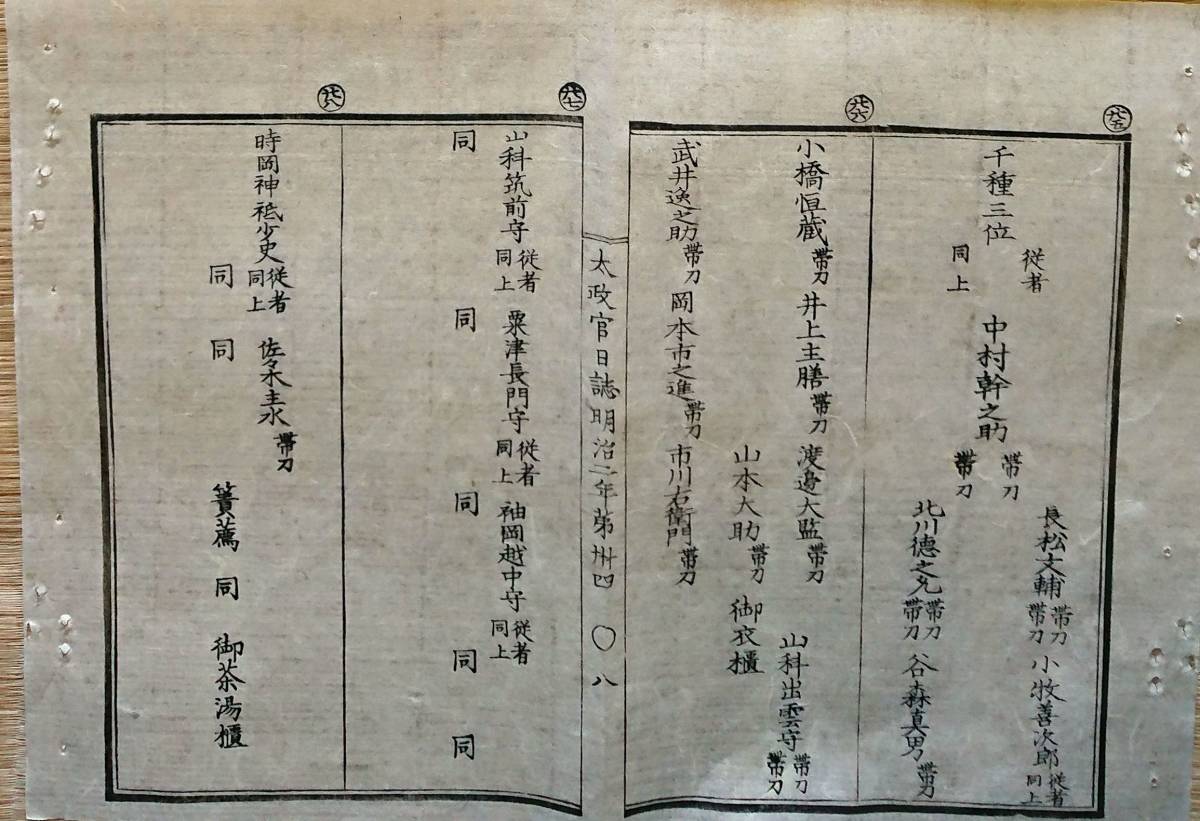 廿五
千種三位
従者
同上
中村幹之助
帯刀
帯刀
長松文輔
帯刀
帯刀
小牧善次郎
従者
同上
北川徳之允
帯刀
帯刀
谷森真男
帯刀
廿六
小橋恒蔵
帯刀
井上主膳
帯刀
渡邊大監
帯刀
山科出雲守
帯刀
帯刀
山本大助
帯刀
御衣櫃
武井逸之助
帯刀
岡本市之進
帯刀
市川右衛門
帯刀
太政官日誌明治二年第卅四
〇八
廿七
山科筑前守
従者
同上
粟津長門守
従者
同上
袖岡越中守
従者
同上
同
同
同
同
同
廿八
時岡神祗少史
従者
同上
佐々木主水
帯刀
同
同
簀薦
同
御茶湯櫃